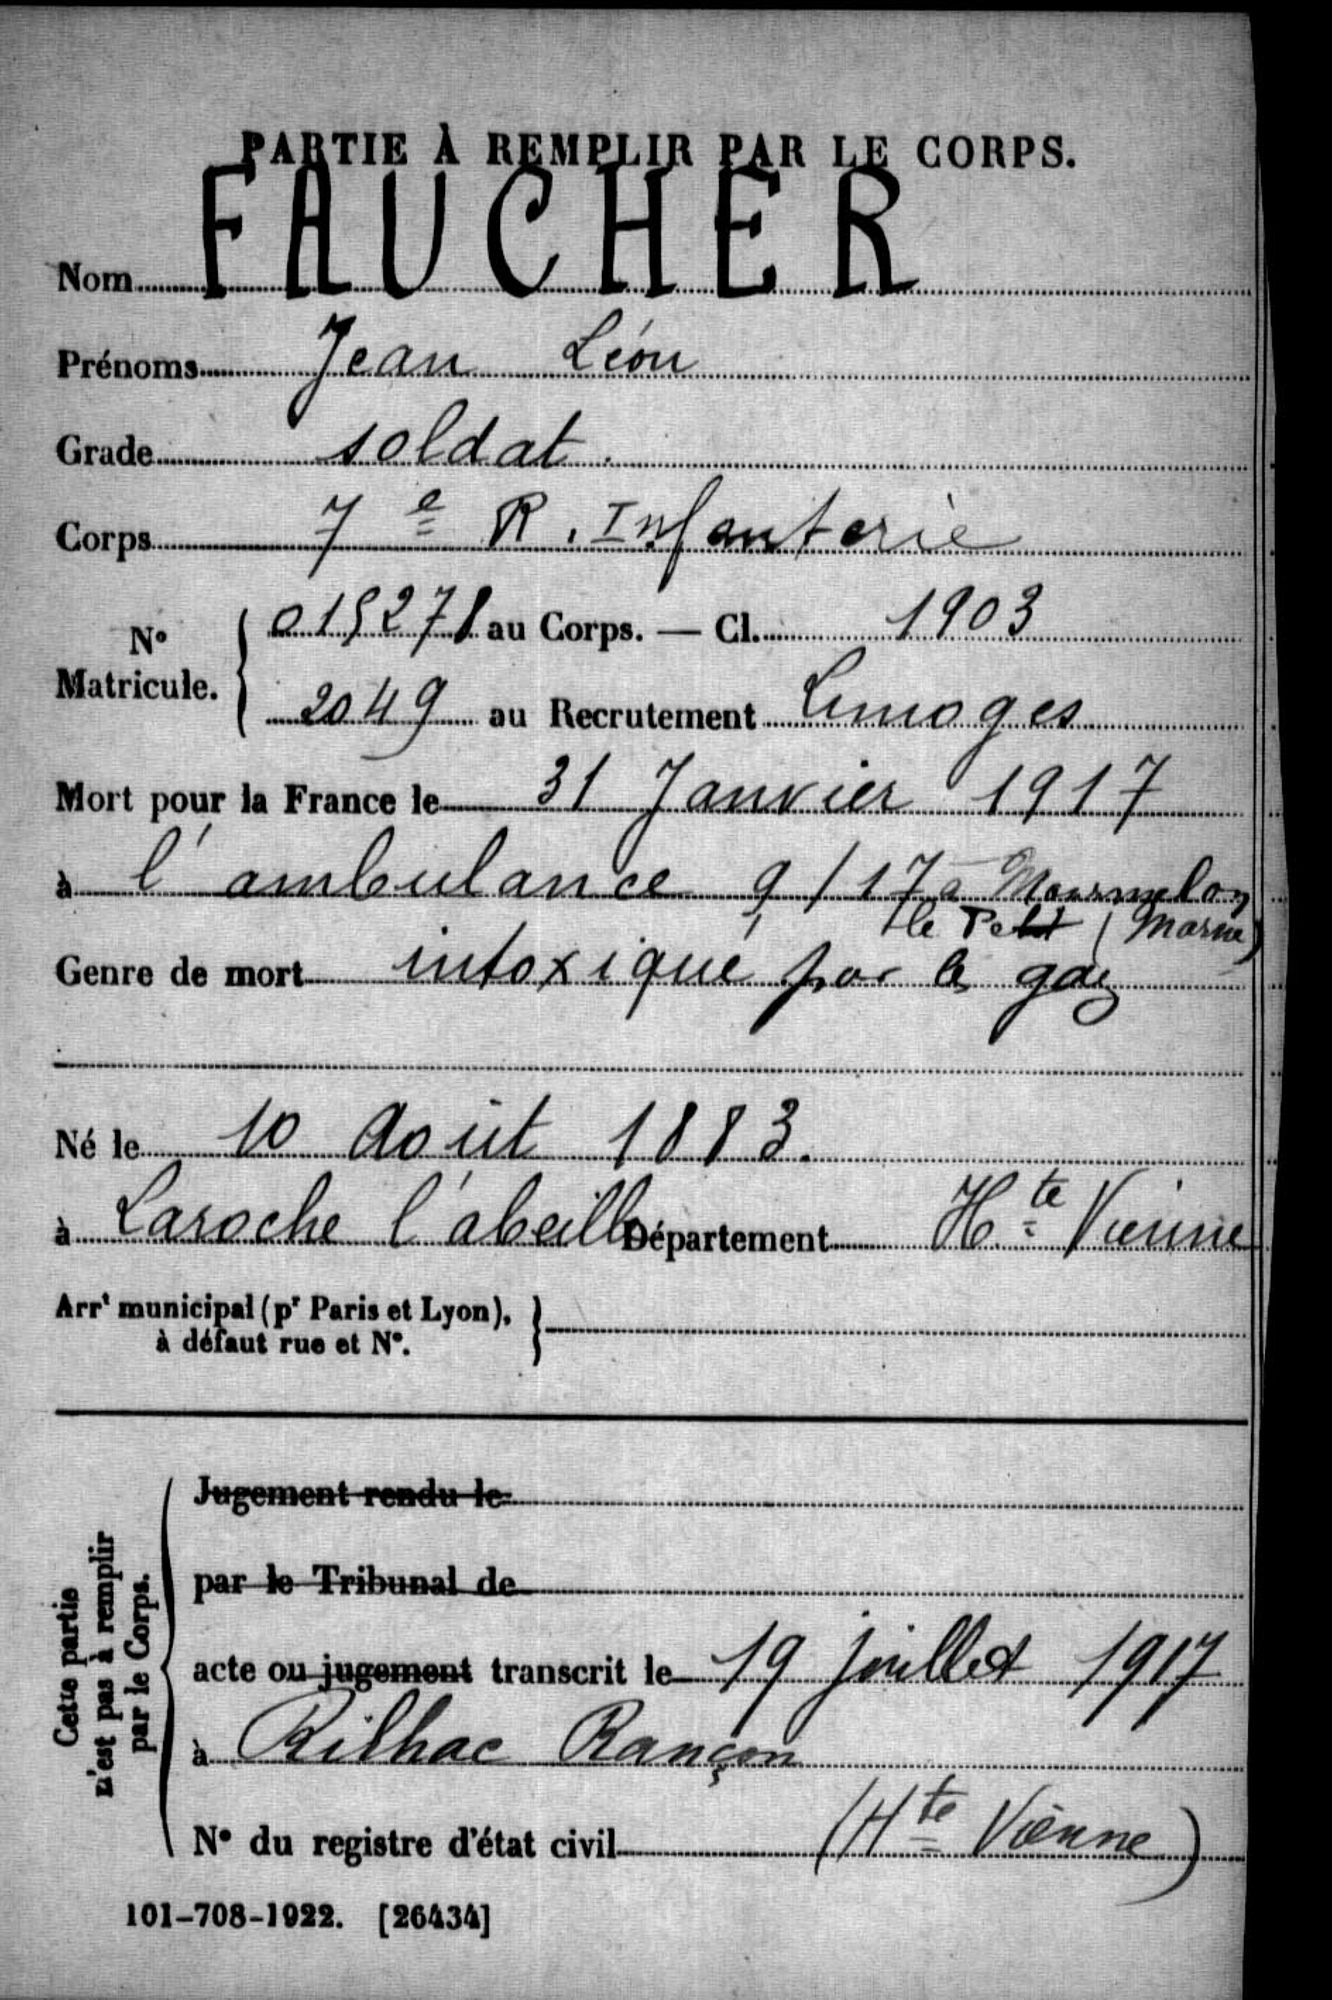 PARTIE À REMPLIR PAR LE CORPS.
Nom FAUCHER
Prénoms Jean Léon
Grade soldat.
Corps 7e R. Infanterie
N° Matricule. 015278 au Corps. — Cl. 1903
2049 au Recrutement Limoges
Mort pour la France le 31 Janvier 1917
à l'ambulance 9/17 à Mourmelon
le Petit (Marne)
Genre de mort intoxiqué par les gaz
Né le 10 Août 1883.
à Laroche l'abeille Département Hte Vienne
Arrt municipal (pr Paris et Lyon),
à défaut rue et N°.
Cette partie
n'est pas à remplir
par le Corps.
Jugement rendu le
par le Tribunal de
acte ou jugement transcrit le 19 juillet 1917
à Rilhac Rançon
N° du registre d'état civil (Hte Vienne)
101-708-1922. [26434]